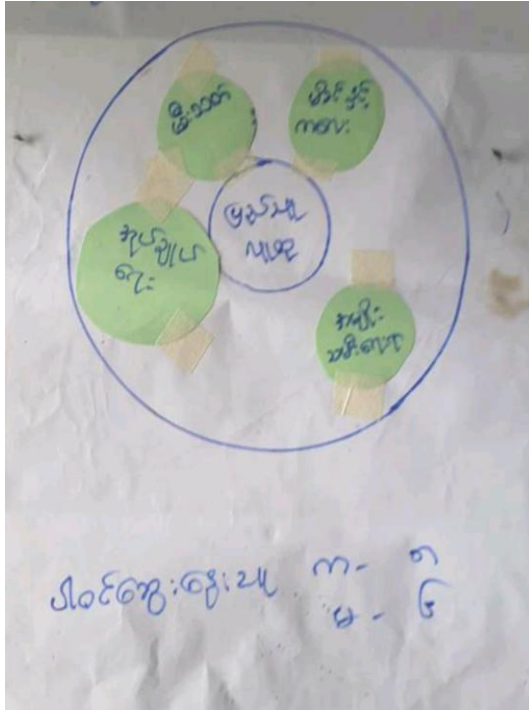 မီးသတ်
မိခင်နှင့်
ကလေး
ပြည်သူ
လူထု
အုပ်ချုပ်
ရေး
အမျိုး
သမီးရေးရာ
ပါဝင်ဆွေးနွေးသူ ကျား - ၈
မ - ၆